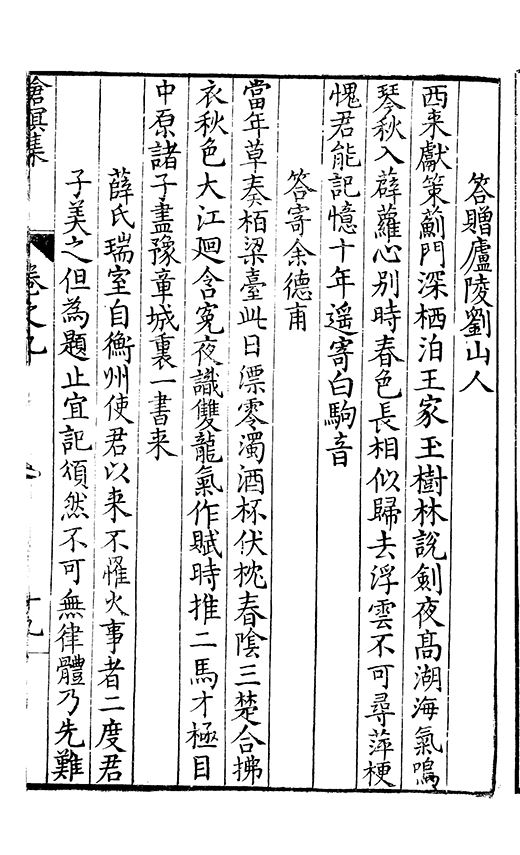 答贈廬陵劉山人
西来獻策薊門深栖泊王家玉樹林說劍夜髙湖海氣鳴
琴秋入薜蘿心別時春色長相似歸去浮雲不可尋萍梗
愧君能記憶十年遥寄白駒音
答寄余德甫
當年草奏栢梁臺此日漂零濁酒杯伏枕春陰三楚合拂
衣秋色大江迴含冤夜識雙龍氣作賦時推二馬才極目
中原諸子盡豫章城裏一書来
薛氏瑞室自衡州使君以来不罹火事者二度君
子美之但為題止宜記頌然不可無律體乃先難
滄溟集
卷之九
十九